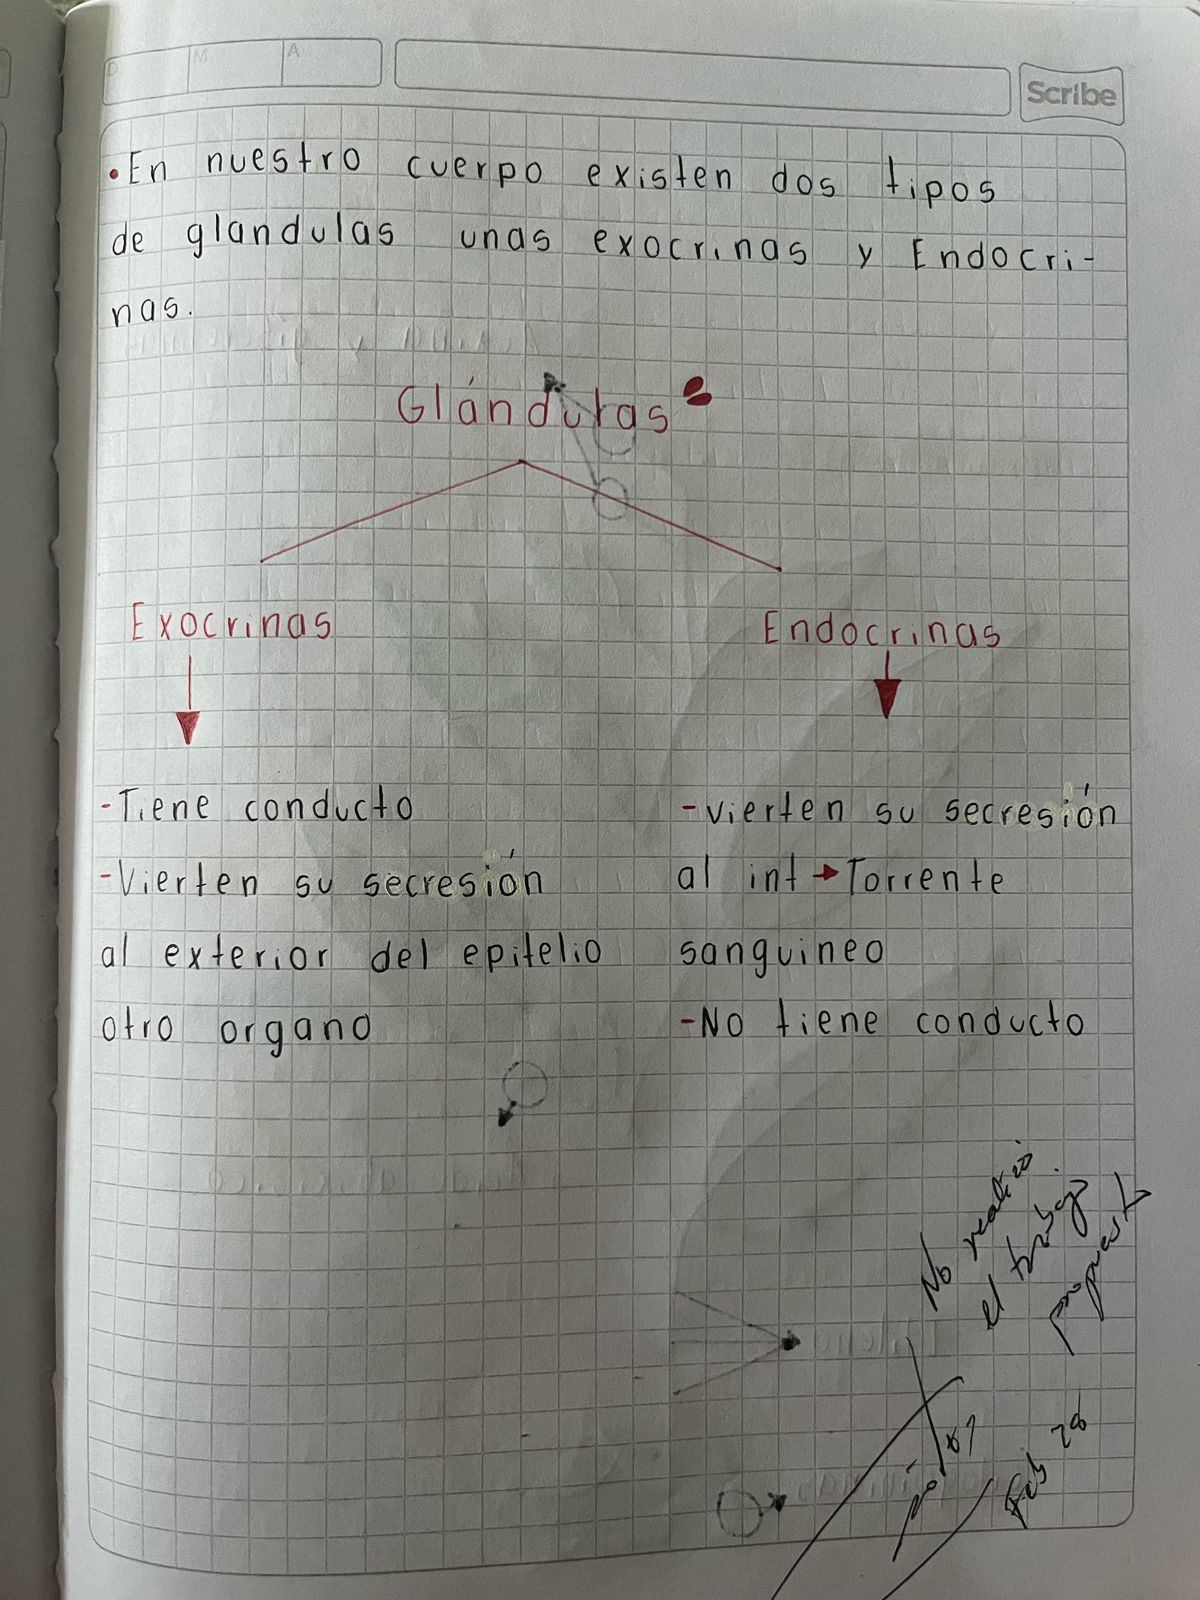 D M A
Scribe
• En nuestro cuerpo existen dos tipos
de glandulas unas exocrinas y Endocri-
nas.
Glándulas
Exocrinas
Endocrinas
- Tiene conducto
- Vierten su secresión
al exterior del epitelio
otro organo
- vierten su secresión
al int → Torrente
sanguineo
- No tiene conducto
No realizó
el trabajo
propuesto
Feb 28